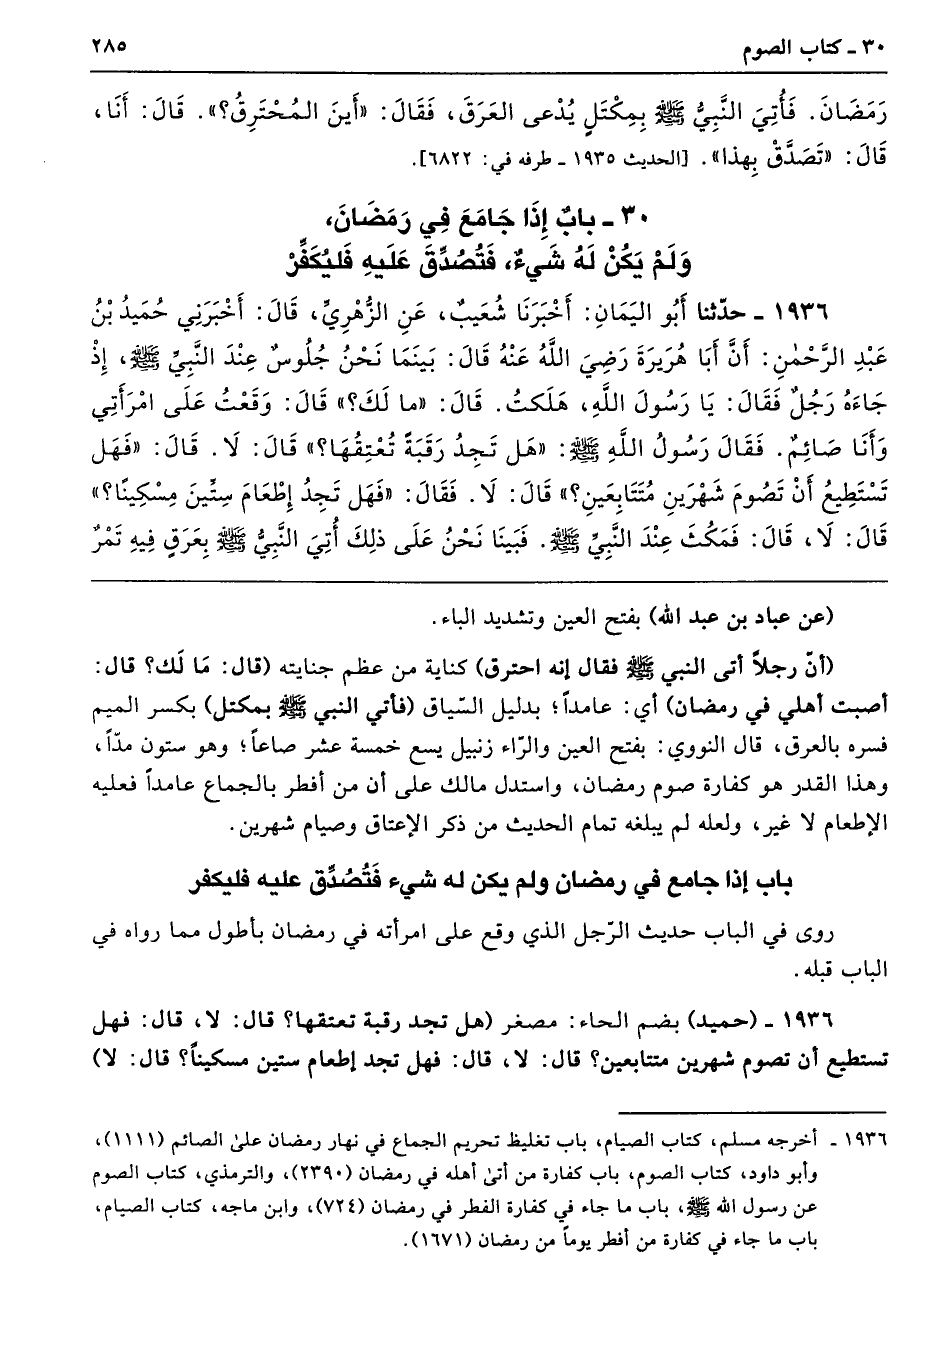 ٣٠ ـ كتاب الصوم ٢٨٥
رَمَضَانَ. فَأُتِيَ النَّبِيُّ ﷺ بِمِكْتَلٍ يُدْعى العَرَقَ، فَقَالَ: «أَينَ المُحْتَرِقُ؟». قَالَ: أَنَا،
قَالَ: «تَصَدَّقْ بِهذا». [الحديث ١٩٣٥ ـ طرفه في: ٦٨٢٢].
٣٠ ـ بابٌ إِذَا جَامَعَ فِي رَمَضَانَ،
وَلَمْ يَكُنْ لَهُ شَيءٌ، فَتُصُدِّقَ عَلَيهِ فَليُكَفِّرْ
١٩٣٦ ـ حدّثنا أَبُو اليَمَانِ: أَخْبَرَنَا شُعَيبٌ، عَنِ الزُّهْرِيِّ، قَالَ: أَخْبَرَنِي حُمَيدُ بْنُ
عَبْدِ الرَّحْمٰنِ: أَنَّ أَبَا هُرَيرَةَ رَضِيَ اللَّهُ عَنْهُ قَالَ: بَينَمَا نَحْنُ جُلُوسٌ عِنْدَ النَّبِيِّ ﷺ، إِذْ
جَاءَهُ رَجُلٌ فَقَالَ: يَا رَسُولَ اللَّهِ، هَلَكتُ. قَالَ: «ما لَكَ؟» قَالَ: وَقَعْتُ عَلَى امْرَأَتِي
وَأَنَا صَائِمٌ. فَقَالَ رَسُولُ اللَّهِ ﷺ: «هَل تَجِدُ رَقَبَةً تُعْتِقُهَا؟» قَالَ: لَا. قَالَ: «فَهَل
تَسْتَطِيعُ أَنْ تَصُومَ شَهْرَينِ مُتَتَابِعَينِ؟» قَالَ: لَا. فَقَالَ: «فَهَل تَجِدُ إِطْعَامَ سِتِّينَ مِسْكِينًا؟»
قَالَ: لَا، قَالَ: فَمَكُثَ عِنْدَ النَّبِيِّ ﷺ. فَبَينَا نَحْنُ عَلَى ذلِكَ أُتِيَ النَّبِيُّ ﷺ بِعَرَقٍ فِيهِ تَمْرٌ
(عن عباد بن عبد الله) بفتح العين وتشديد الباء.
(أنّ رجلاً أتى النبي ﷺ فقال إنه احترق) كناية من عظم جنايته (قال: مَا لَك؟ قال:
أصبت أهلي في رمضان) أي: عامداً؛ بدليل السّياق (فأتي النبي ﷺ بمكتل) بكسر الميم
فسره بالعرق، قال النووي: بفتح العين والرّاء زنبيل يسع خمسة عشر صاعاً؛ وهو ستون مدّاً،
وهذا القدر هو كفارة صوم رمضان، واستدل مالك على أن من أفطر بالجماع عامداً فعليه
الإطعام لا غير، ولعله لم يبلغه تمام الحديث من ذكر الإعتاق وصيام شهرين.
باب إذا جامع في رمضان ولم يكن له شيء فَتُصُدِّق عليه فليكفر
روى في الباب حديث الرّجل الذي وقع على امرأته في رمضان بأطول مما رواه في
الباب قبله.
١٩٣٦ ـ (حميد) بضم الحاء: مصغر (هل تجد رقبة تعتقها؟ قال: لا، قال: فهل
تستطيع أن تصوم شهرين متتابعين؟ قال: لا، قال: فهل تجد إطعام ستين مسكيناً؟ قال: لا)
١٩٣٦ ـ أخرجه مسلم، كتاب الصيام، باب تغليظ تحريم الجماع في نهار رمضان علىٰ الصائم (١١١١)،
وأبو داود، كتاب الصوم، باب كفارة من أتىٰ أهله في رمضان (٢٣٩٠)، والترمذي، كتاب الصوم
عن رسول الله ﷺ، باب ما جاء في كفارة الفطر في رمضان (٧٢٤)، وابن ماجه، كتاب الصيام،
باب ما جاء في كفارة من أفطر يوماً من رمضان (١٦٧١).